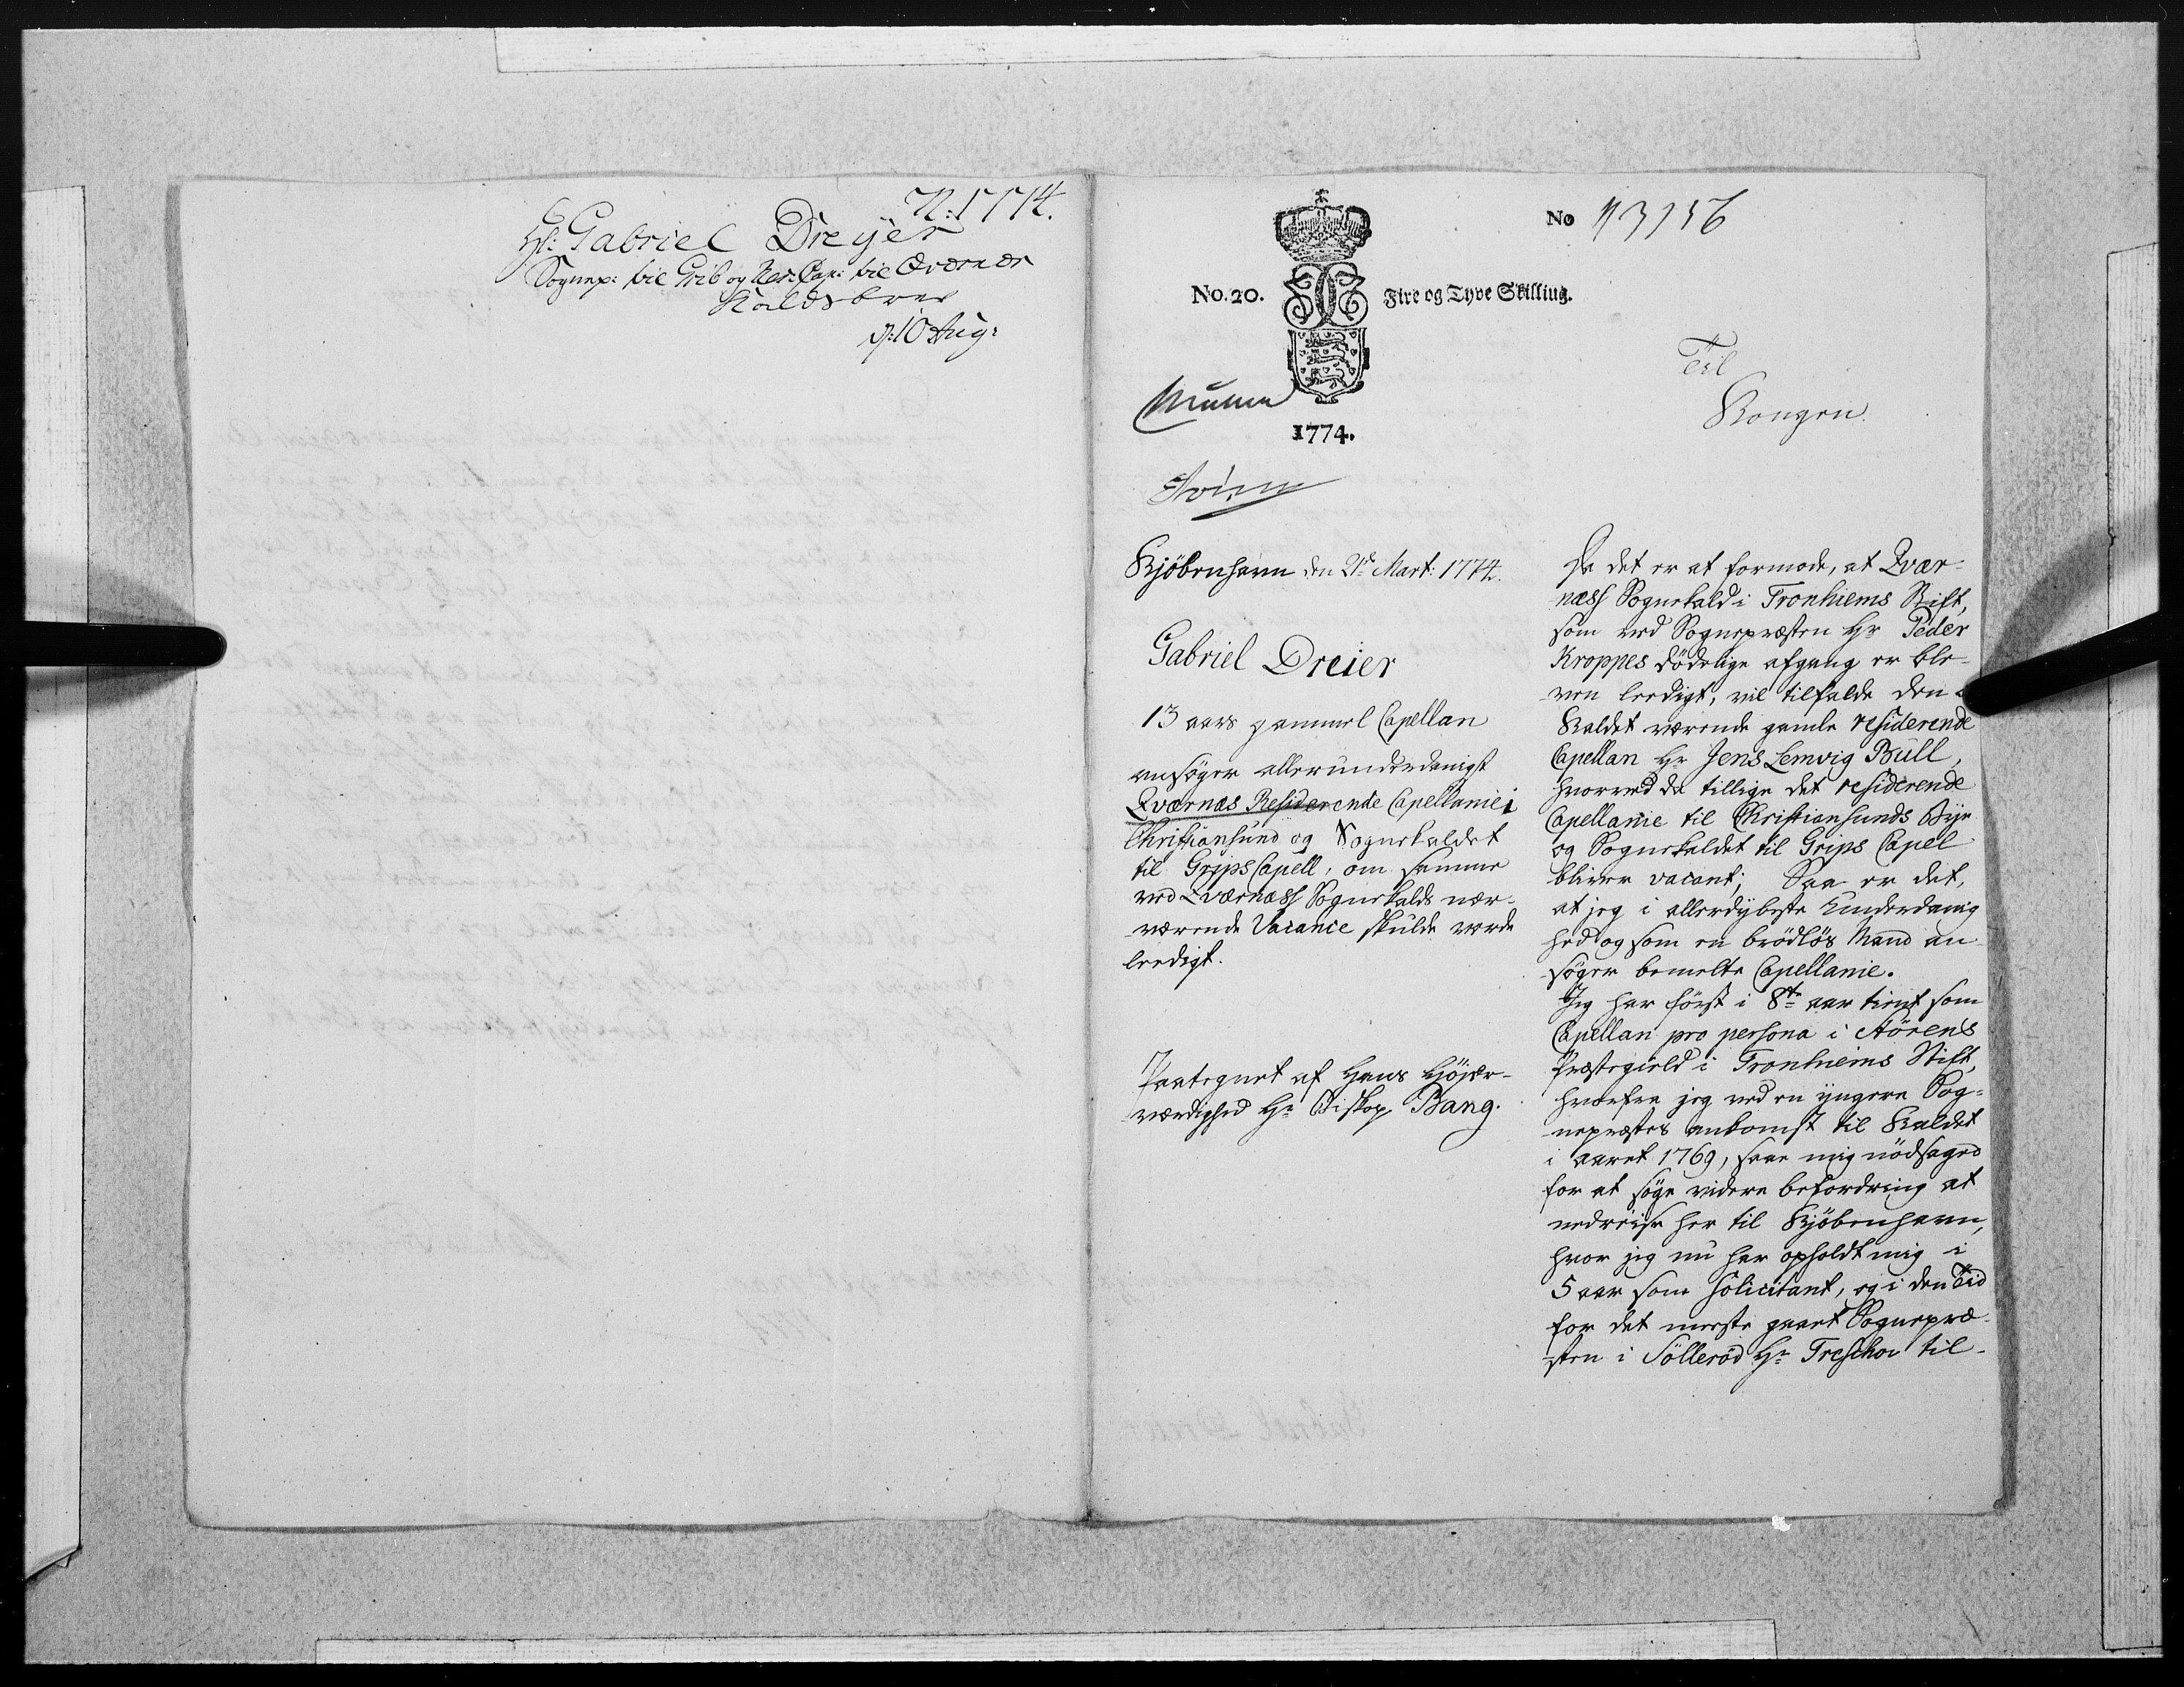 N: 1774.
Hr: Gabriel Dreyer
Sognep: til Grib og Res: Cap: til Qværnes
Kaldsbrev
d: 10 Aug:
No 43156
No. 20.
Fire og Tyve Skilling.
1774.
Til
Kongen.
Kjöbenhavn den 21de Mart: 1774.
Gabriel Dreier
13 aars gammel Capellan
ansöger allerunderdanigst
Qværnæs Residerende Capellanie i
Christiansund og Sognekaldet
til Grips Capell, om samme
ved Qværnæss Sognekalds nær-
værende Vacance skulde vorde
leedigt.
Paategnet af Hans Höjær-
værdighed Hr Biskop Bang.
Da det er at formode, at Qvær-
næss Sognekald i Tronhiems Stift,
som ved Sognepræsten Hr Peder
Kroppes dödelige afgang er ble-
ven leedigt, vil tilfalde den
Kaldet værende gamle residerende
Capellan Hr Jens Lemvig Bull,
hvorved da tillige det residerende
Capellanie til Christiansunds Bye
og Sognekaldet til Grips Capel
bliver vacant; Saa er det,
at jeg i allerdybeste Underdanig
hed og som en brödlös Mand an
söger bemelte Capellanie.
Jeg har först i 8te aar tient som
Capellan pro persona i Störens
Præstegield i Tronhiems Stift,
hvorfra jeg ved en yngere Sog-
nepræstes ankomst til Kaldet
i aaret 1769, saae mig nödsaged
for at söge videre befordring at
nedreise her til Kjöbenhavn,
hvor jeg nu har opholdt mig i
5 aar som Solicitant, og i den Tid
for det meeste gaaet Sognepræ-
sten i Söllerød Hr Treschow til-